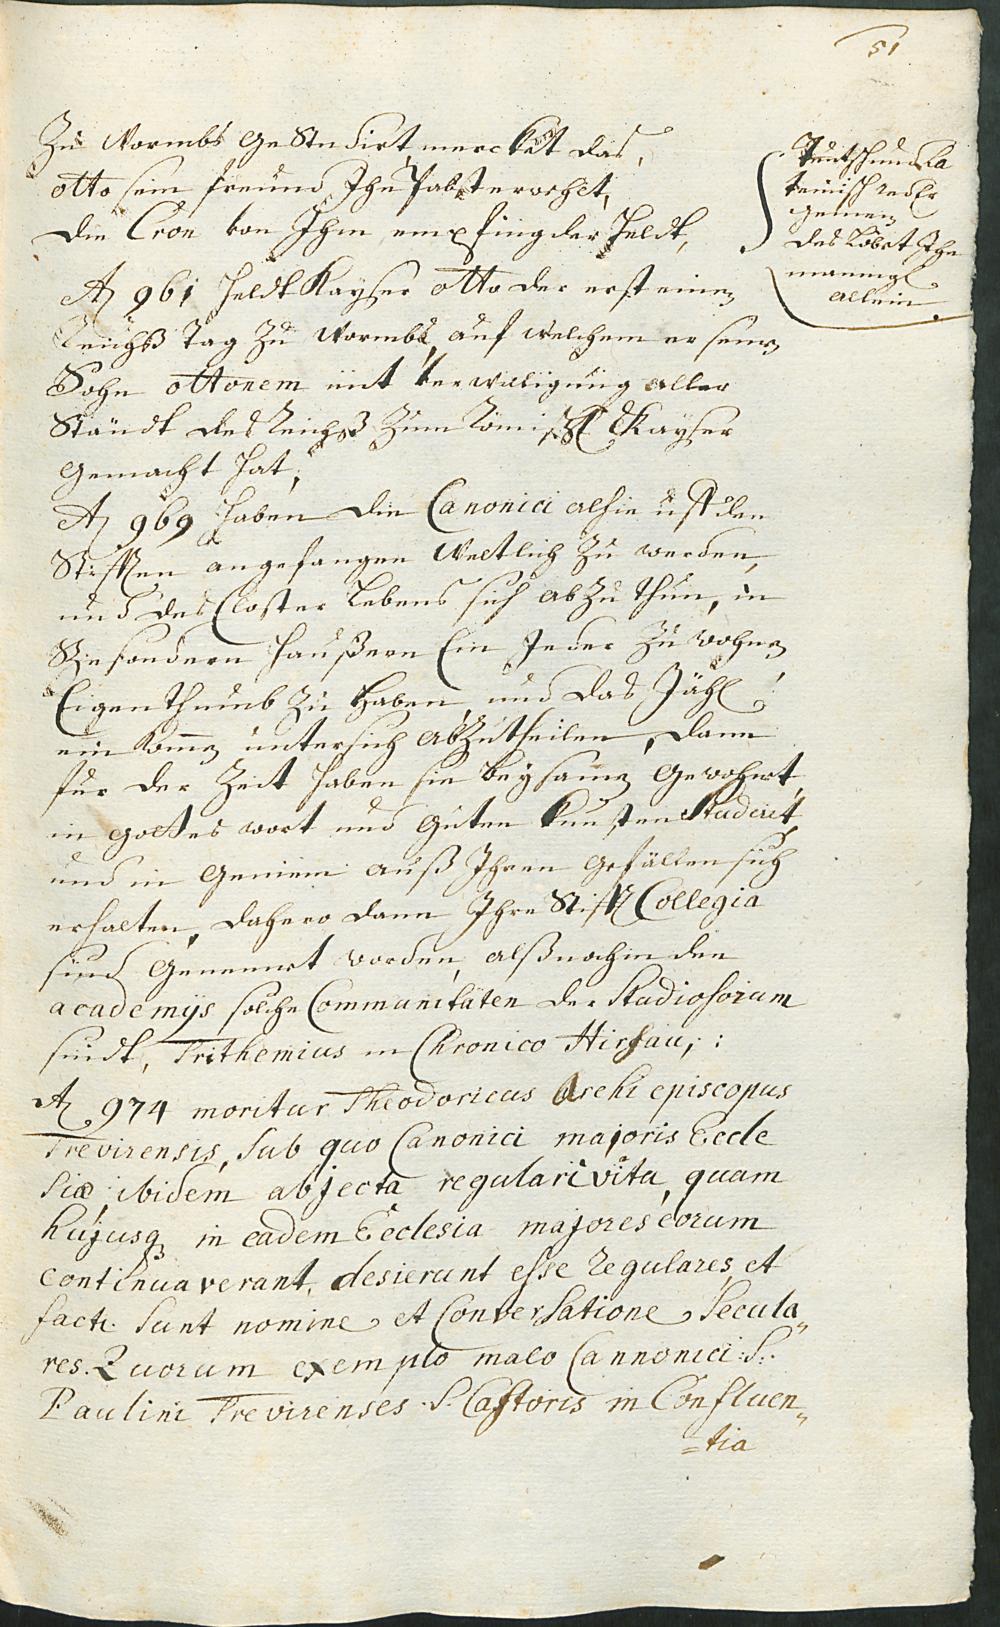 51
Zu Wormbs Gestudirt, mercket das,
otto sein freund Ihn Pabst erwehlt,
die Cron von Ihm empfing der Heldt,
Teutsch und La
teinisch redEr
gemein
das Lobet Ihn
mannigl
allein.
Aͦ 961 Heldt Kayser otto der erst einen
Reichß Tag Zu Wormbs, auf welchem er seinen
Sohn ottonem mit verwilligung aller
Ständt des Reichß Zum Römisch Kayser
gemacht hat,
Aͦ 969 haben die Canonici alhie uff den
Stifften angefangen Weltlich Zu werden,
und des Closter Lebens sich abZu thun, in
Besondern Haußern Ein Jeder Zu wohnen
Eigenthumb Zu haben, und das Jährl
einkomen unter sich abZutheilen, dann
für der Zeit haben sie beysamen gewohnt,
in gottes wort und guten Kunsten studirt,
und in gemein auß Ihren gefällen sich
erhalten, dahero dann Ihre Stifft Collegia
sind genennt worden, alß noch in den
academijs solche Communitäten der Studiosorum
sindt, Trithemius in Chronico Hirsau,:
Aͦ 974 moritur Theodoricus Archi episcopus
Trevirensis, sub quo Canonici majoris Eccle
siæ ibidem abjecta regulari vita, quam
hujusq in eadem Ecclesia majores eorum
continuaverant, desierunt esse regulares, et
facti sunt nomine et Conversatione Secula„
res. Quorum exemplo malo Cannonici S.
Paulini Trevirenses S. Castoris in Confluen„
=tia